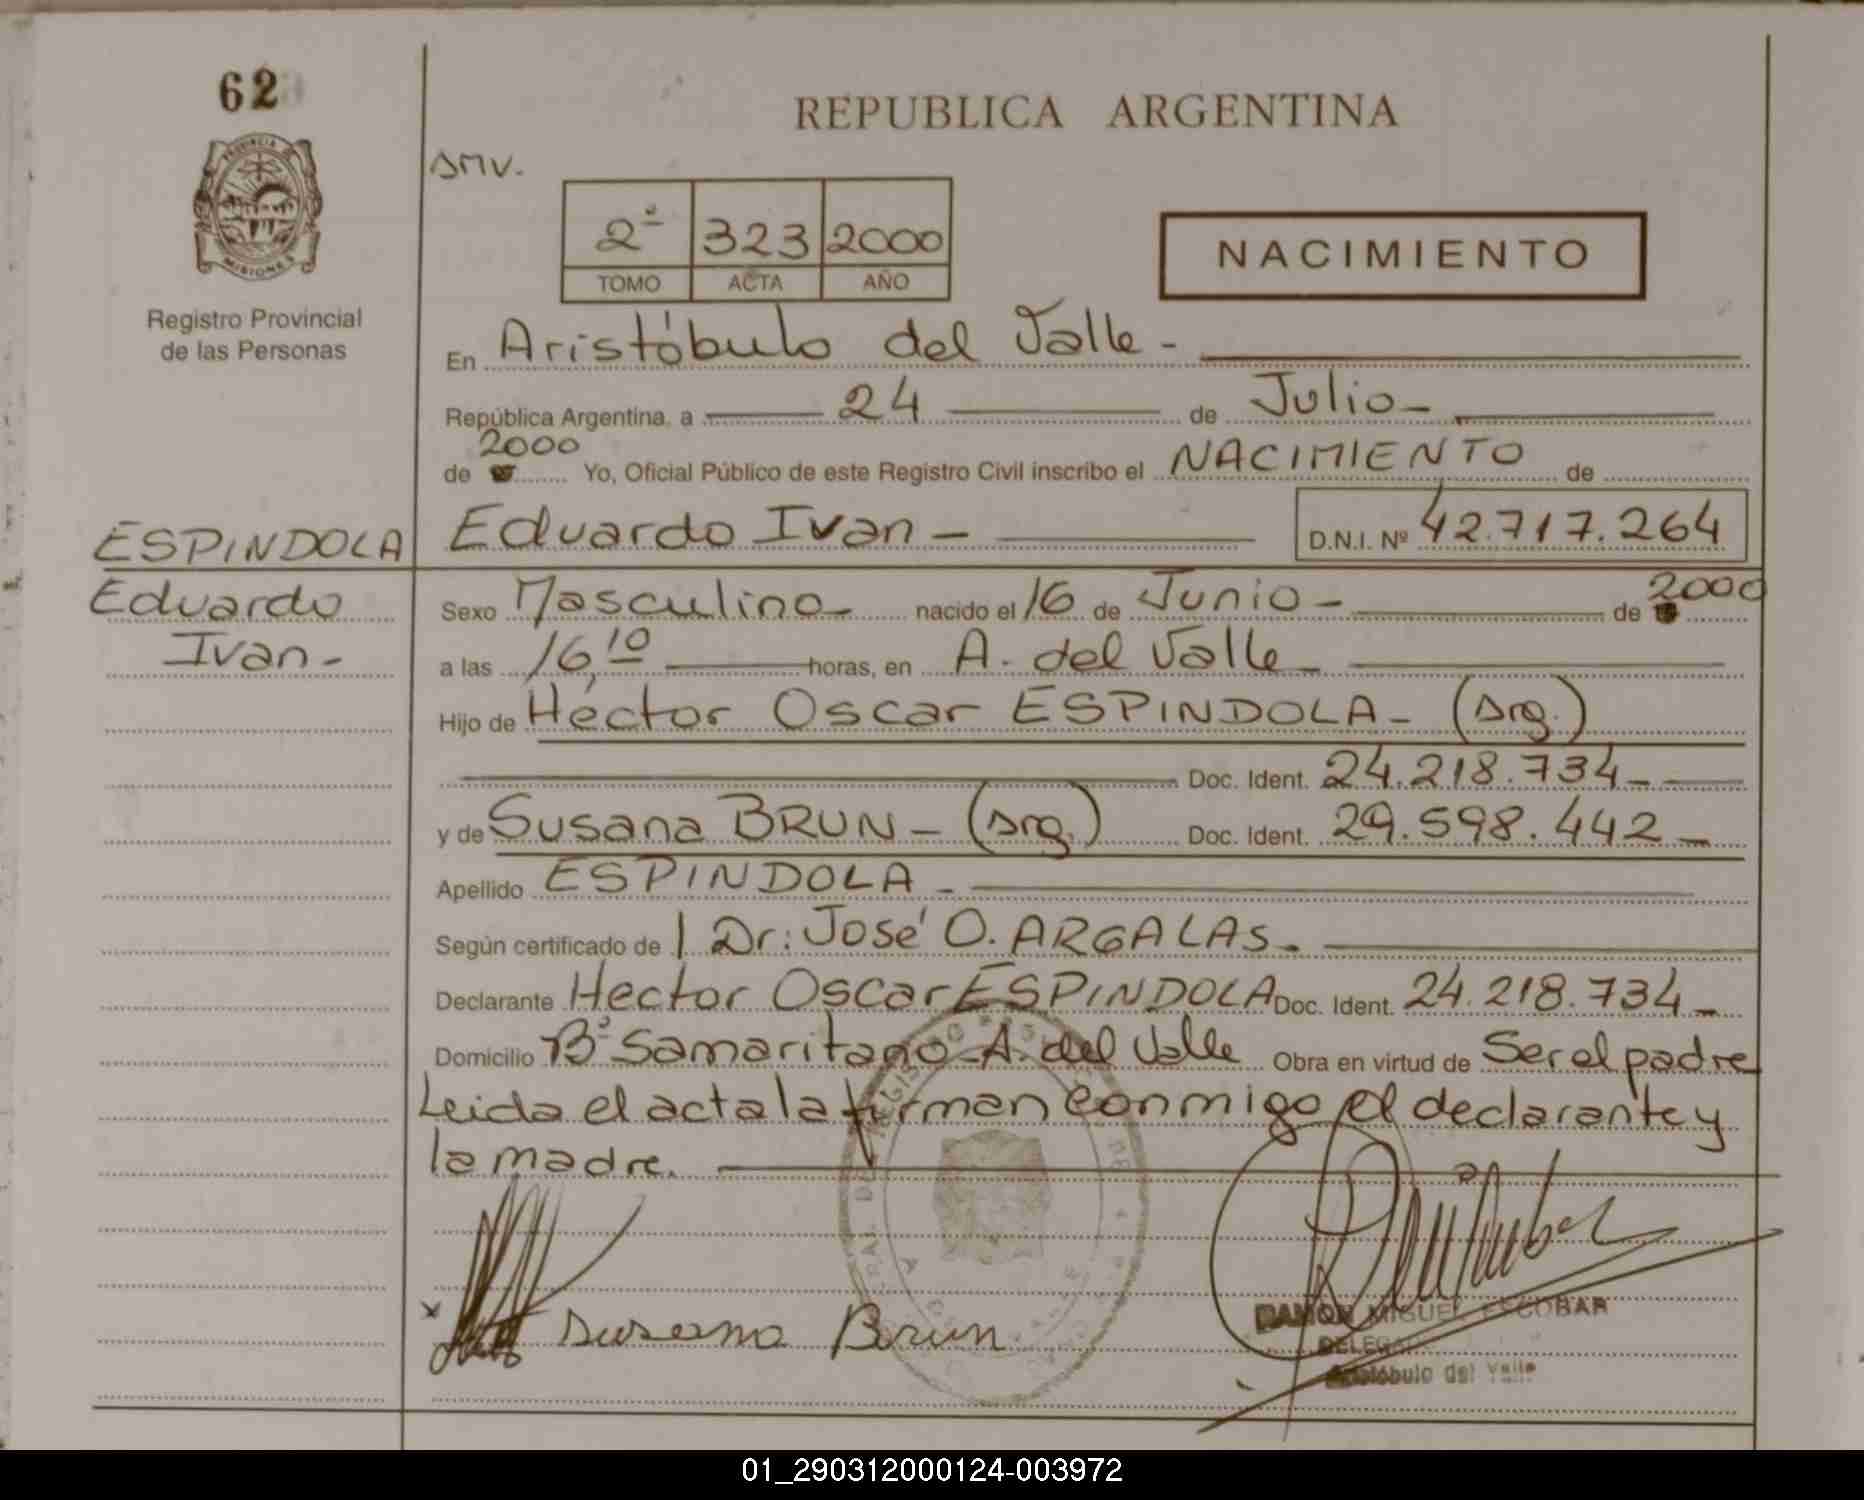 62
REPUBLICA ARGENTINA
PROVINCIA DE
MISIONES
Registro Provincial
de las Personas
2º 323 2000
TOMO ACTA AÑO
NACIMIENTO
En Aristóbulo del Valle -
República Argentina, a 24 de Julio -
2000
de Yo, Oficial Público de este Registro Civil inscribo el NACIMIENTO de
ESPINDOLA Eduardo Ivan - D.N.I. Nº 42.717.264
Eduardo
Ivan -
Sexo Masculino - nacido el 16 de Junio - de 2000
a las 16,10 horas, en A. del Valle -
Hijo de Héctor Oscar ESPINDOLA - (Arg.)
Doc. Ident. 24.218.734 -
y de Susana BRUN - (Arg.) Doc. Ident. 29.598.442 -
Apellido ESPINDOLA -
Según certificado de Dr: José O. ARGALAS -
Declarante Hector Oscar ESPINDOLA Doc. Ident. 24.218.734 -
Domicilio Bº Samaritano - A. del Valle Obra en virtud de Ser el padre
Leida el acta la firman conmigo el declarante y
la madre.
x Susana Brun
RAMON MIGUEL ESCOBAR
Aristóbulo del Valle
01_290312000124-003972